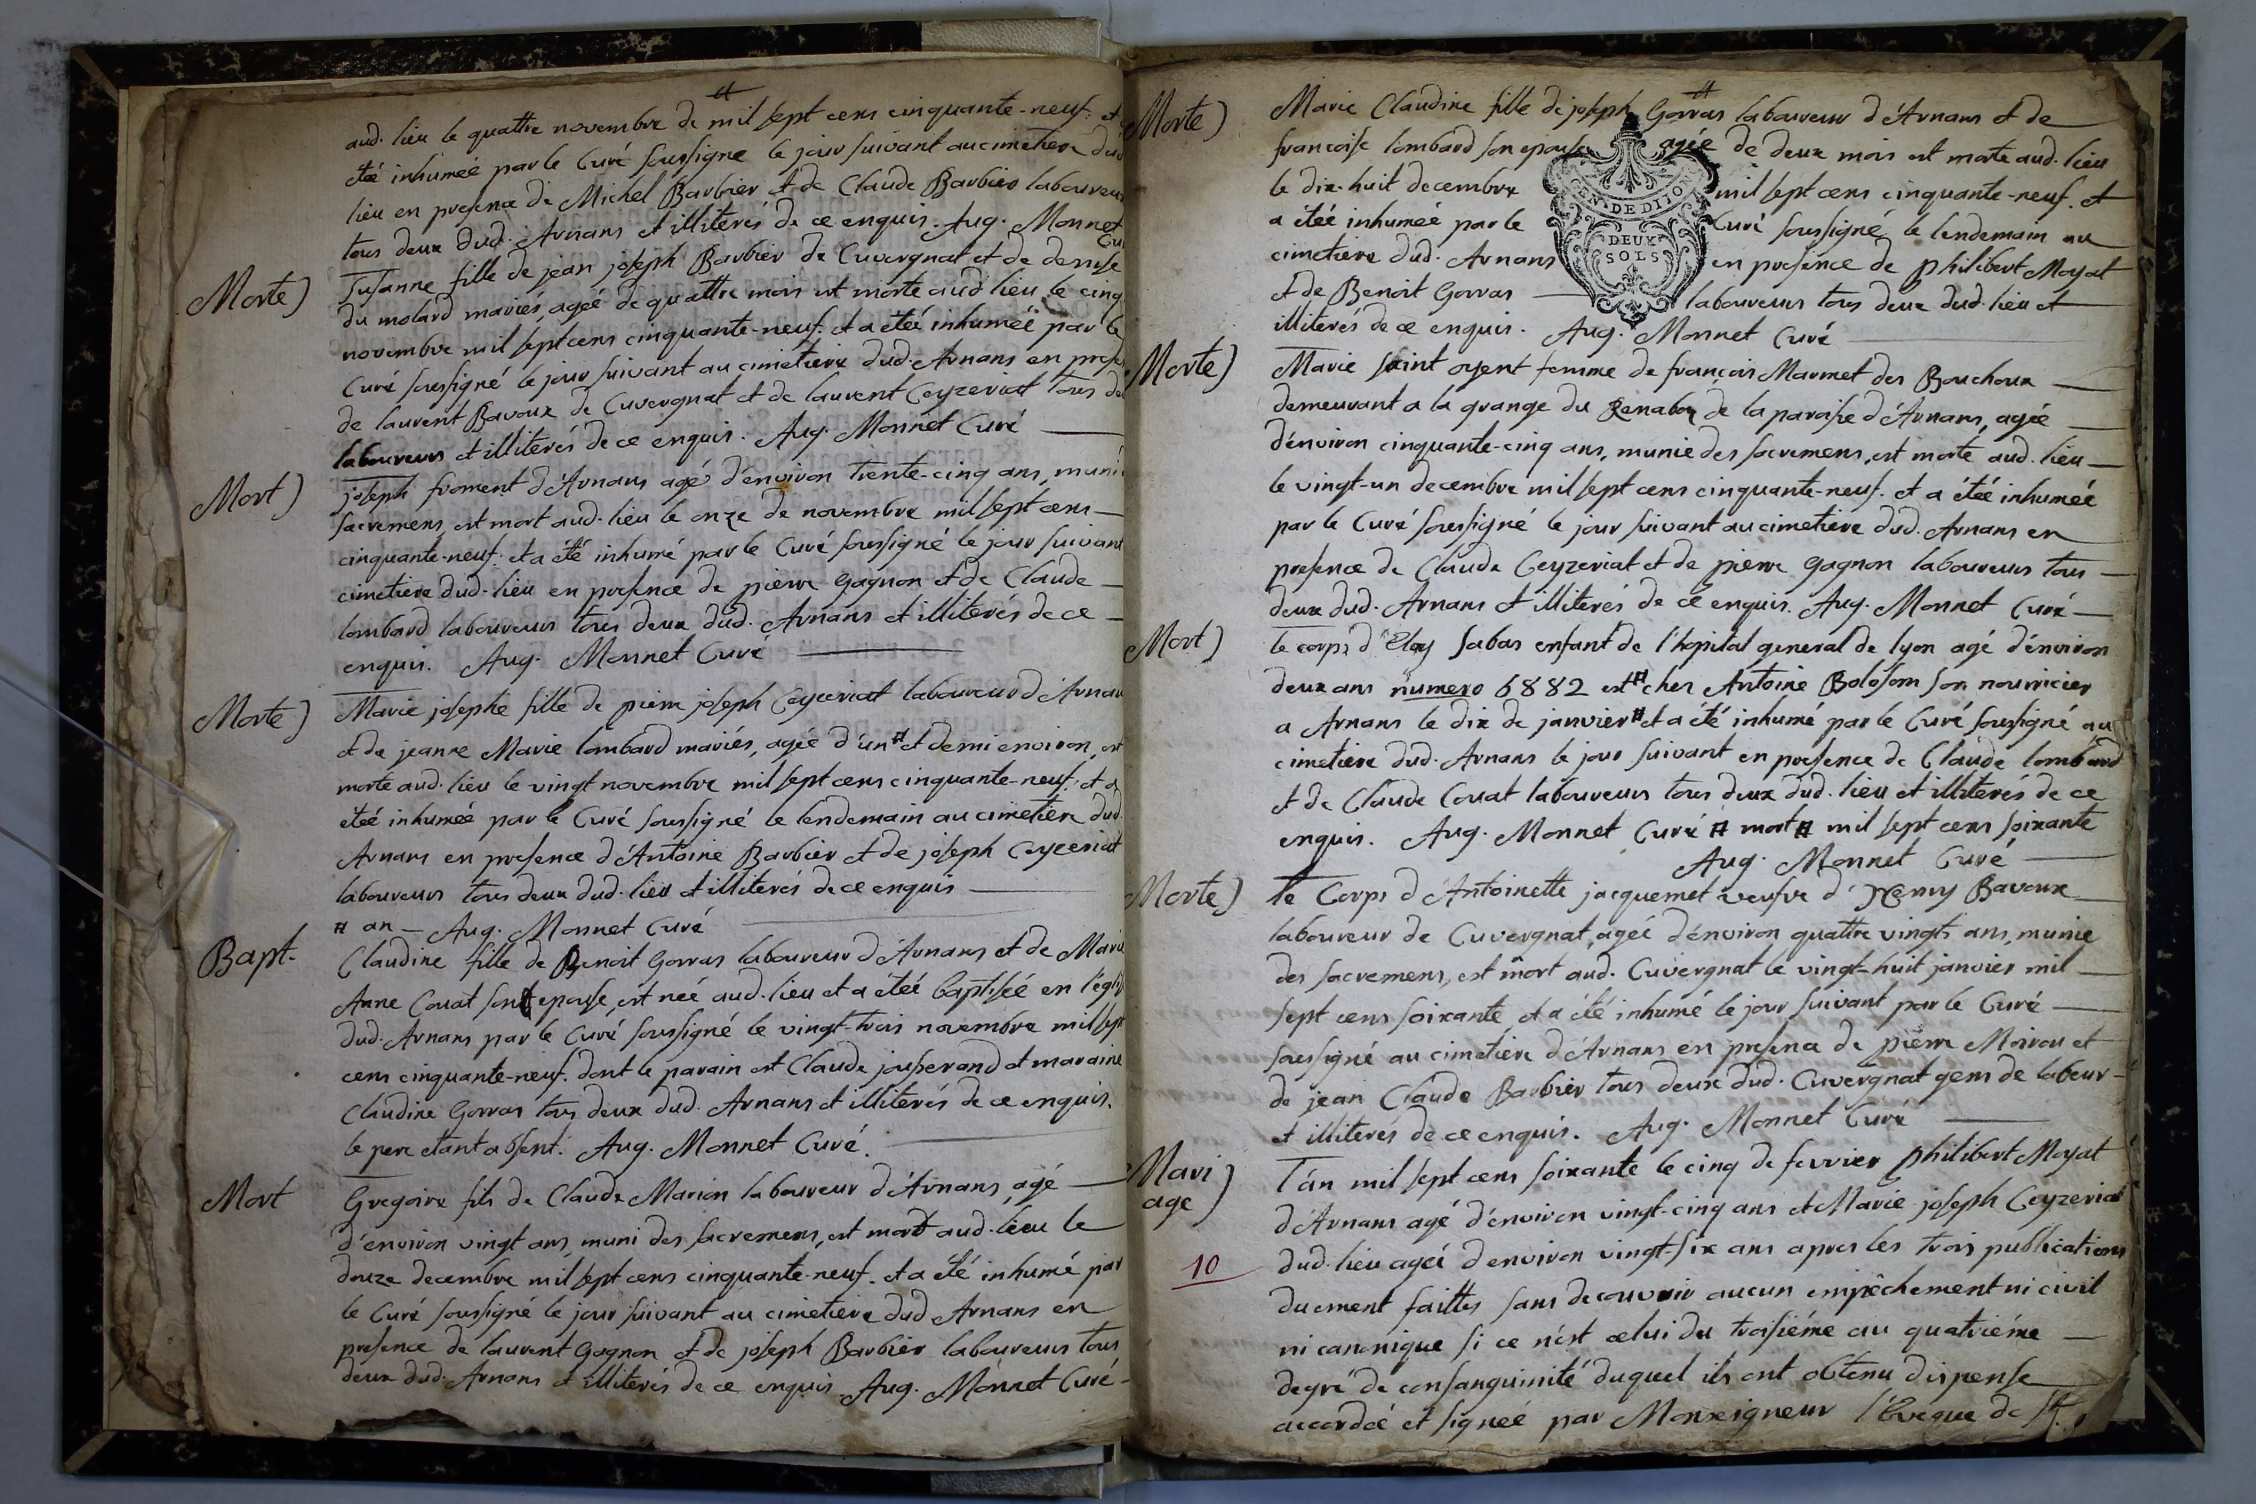 aud. lieu le quattre novembre de mil sept cens cinquante-neuf. et
etéé inhumée par le Curé soussigne le jour suivant au cimetiere dud
lieu en presence de Michel Barbier et de Claude Barbier laboureur
tous deux dud. Arnans et illiterés de ce enquis. Aug. Monnet
Cu
Morte)
Susanne fille de jean joseph Barbier de Cuvergnat et de denise
du molard mariés, ageé de quattre mois est morte aud lieu le cinq
novembre mil sept cens cinquante-neuf. et a etéé inhumeé par le
Curé soussigné le jour suivant au cimetiere dud. Arnans en prese
de laurent Bavoux de Cuvergnat et de laurent Ceyzeriat tous de
laboureurs et illiterés de ce enquis. Aug. Monnet Curé
Mort)
joseph froment d'Arnans agé d'environ trente-cinq ans, muni
sacremens, est mort aud. lieu le onze de novembre mil sept cens
cinquante-neuf. et a été inhumé par le Curé soussigné le jour suivant
cimetiere dud. lieu en presence de pierre gagnon et de Claude
lombard laboureurs tous deux dud. Arnans et illiterés de ce
enquis. Aug. Monnet Curé
Morte)
Marie josephe fille de pierre joseph Ceyzeriat laboureur d'Arnan
et de jeanne Marie lombard mariés, agee d'un # et demi environ, est
morte aud. lieu le vingt novembre mil sept cens cinquante-neuf. et a
etéé inhumée par le Curé soussigné le lendemain au cimetiere dud.
Arnans en presence d'Antoine Barbier et de joseph Ceyzeriat
laboureurs tous deux dud. lieu et illiterés de ce enquis
# an — Aug. Monnet Curé
Bapt.
Claudine fille de Benoit Gorras laboureur d'Arnans et de Marie
Anne Couat son epouse, est née aud. lieu et a etéé baptisée en l'égli
dud. Arnans par le Curé soussigné le vingt-trois novembre mil sept
cens cinquante-neuf. dont le parain est Claude jousserand et maraine
Claudine Gorras tous deux dud. Arnans et illiterés de ce enquis.
le pere etant absent. Aug. Monnet Curé.
Mort
Gregoire fils de Claude Marion laboureur d'Arnans, agé
d'environ vingt ans, muni des sacremens, est mort aud. lieu le
douze decembre mil sept cens cinquante-neuf. et a été inhumé par
le Curé soussigné le jour suivant au cimetiere dud Arnans en
presence de laurent Gagnon et de joseph Barbier laboureurs tous
deux dud. Arnans et illiterés de ce enquis. Aug. Monnet Curé
Morte)
Marie Claudine fille de joseph Gorras laboureur d'Arnans et de
francoise lombard son epouse agée de deux mois est morte aud. lieu
le dix-huit decembre mil sept cens cinquante-neuf. et
a etéé inhumeé par le Curé soussigné le lendemain au
cimetiere dud. Arnans en presence de philibert Moyat
et de Benoit Gorras laboureurs tous deux dud. lieu et
illiterés de ce enquis. Aug. Monnet Curé
GEN. DE DIJON
DEUX
SOLS
Morte)
Marie saint oyent femme de francois Marmet des Bouchoux
demeurant a la grange du de la paroisse d'Arnans, agée
d'environ cinquante-cinq ans, munie des sacremens, est morte aud. lieu
le vingt-un decembre mil sept cens cinquante-neuf. et a étéé inhumée
par le Curé soussigné le jour suivant au cimetiere dud. Arnans en
presence de Claude Ceyzeriat et de pierre gagnon laboureurs tous
deux dud. Arnans et illiterés de ce enquis. Aug. Monnet Curé
Mort)
le corps d'Eloy Sabas enfant de l'hopital general de lyon agé d'environ
deux ans numero 6882 est # chez Antoine Bolosom son nourricier
a Arnans le dix de janvier # et a été inhumé par le Curé soussigné au
cimetiere dud. Arnans le jour suivant en presence de Claude lombard
et de Claude Couat laboureurs tous deux dud. lieu et illiterés de ce
enquis. Aug. Monnet Curé # mort # mil sept cens soixante
Aug. Monnet Curé
Morte)
le Corps d'Antoinette jacquemet veufve d' Henry Bavoux
laboureur de Cuvergnat, agée d'environ quattre vingts ans, munie
des sacremens, est mort aud. Cuvergnat le vingt-huit janvier mil
sept cens soixante et a été inhumé le jour suivant par le Curé
soussigné au cimetiere d'Arnans en presence de pierre Moirou et
de jean Claude Barbier tous deux dud. Cuvergnat gens de labeur
et illiterés de ce enquis. Aug. Monnet Curé
Mari
age)
10
l'an mil sept cens soixante le cinq de fevrier philibert Moyat
d'Arnans agé d'environ vingt-cinq ans et Marie joseph Ceyzeriat
dud. lieu ageé d'environ vingt-six ans apres les trois publications
duement faittes sans decouvrir aucun empêchement ni civil
ni canonique si ce n'est celui du troisiéme au quatriéme
degré de consanguinité duquel ils ont obtenu dispense
accordeé et signeé par Monseigneur l'Eveque de St.